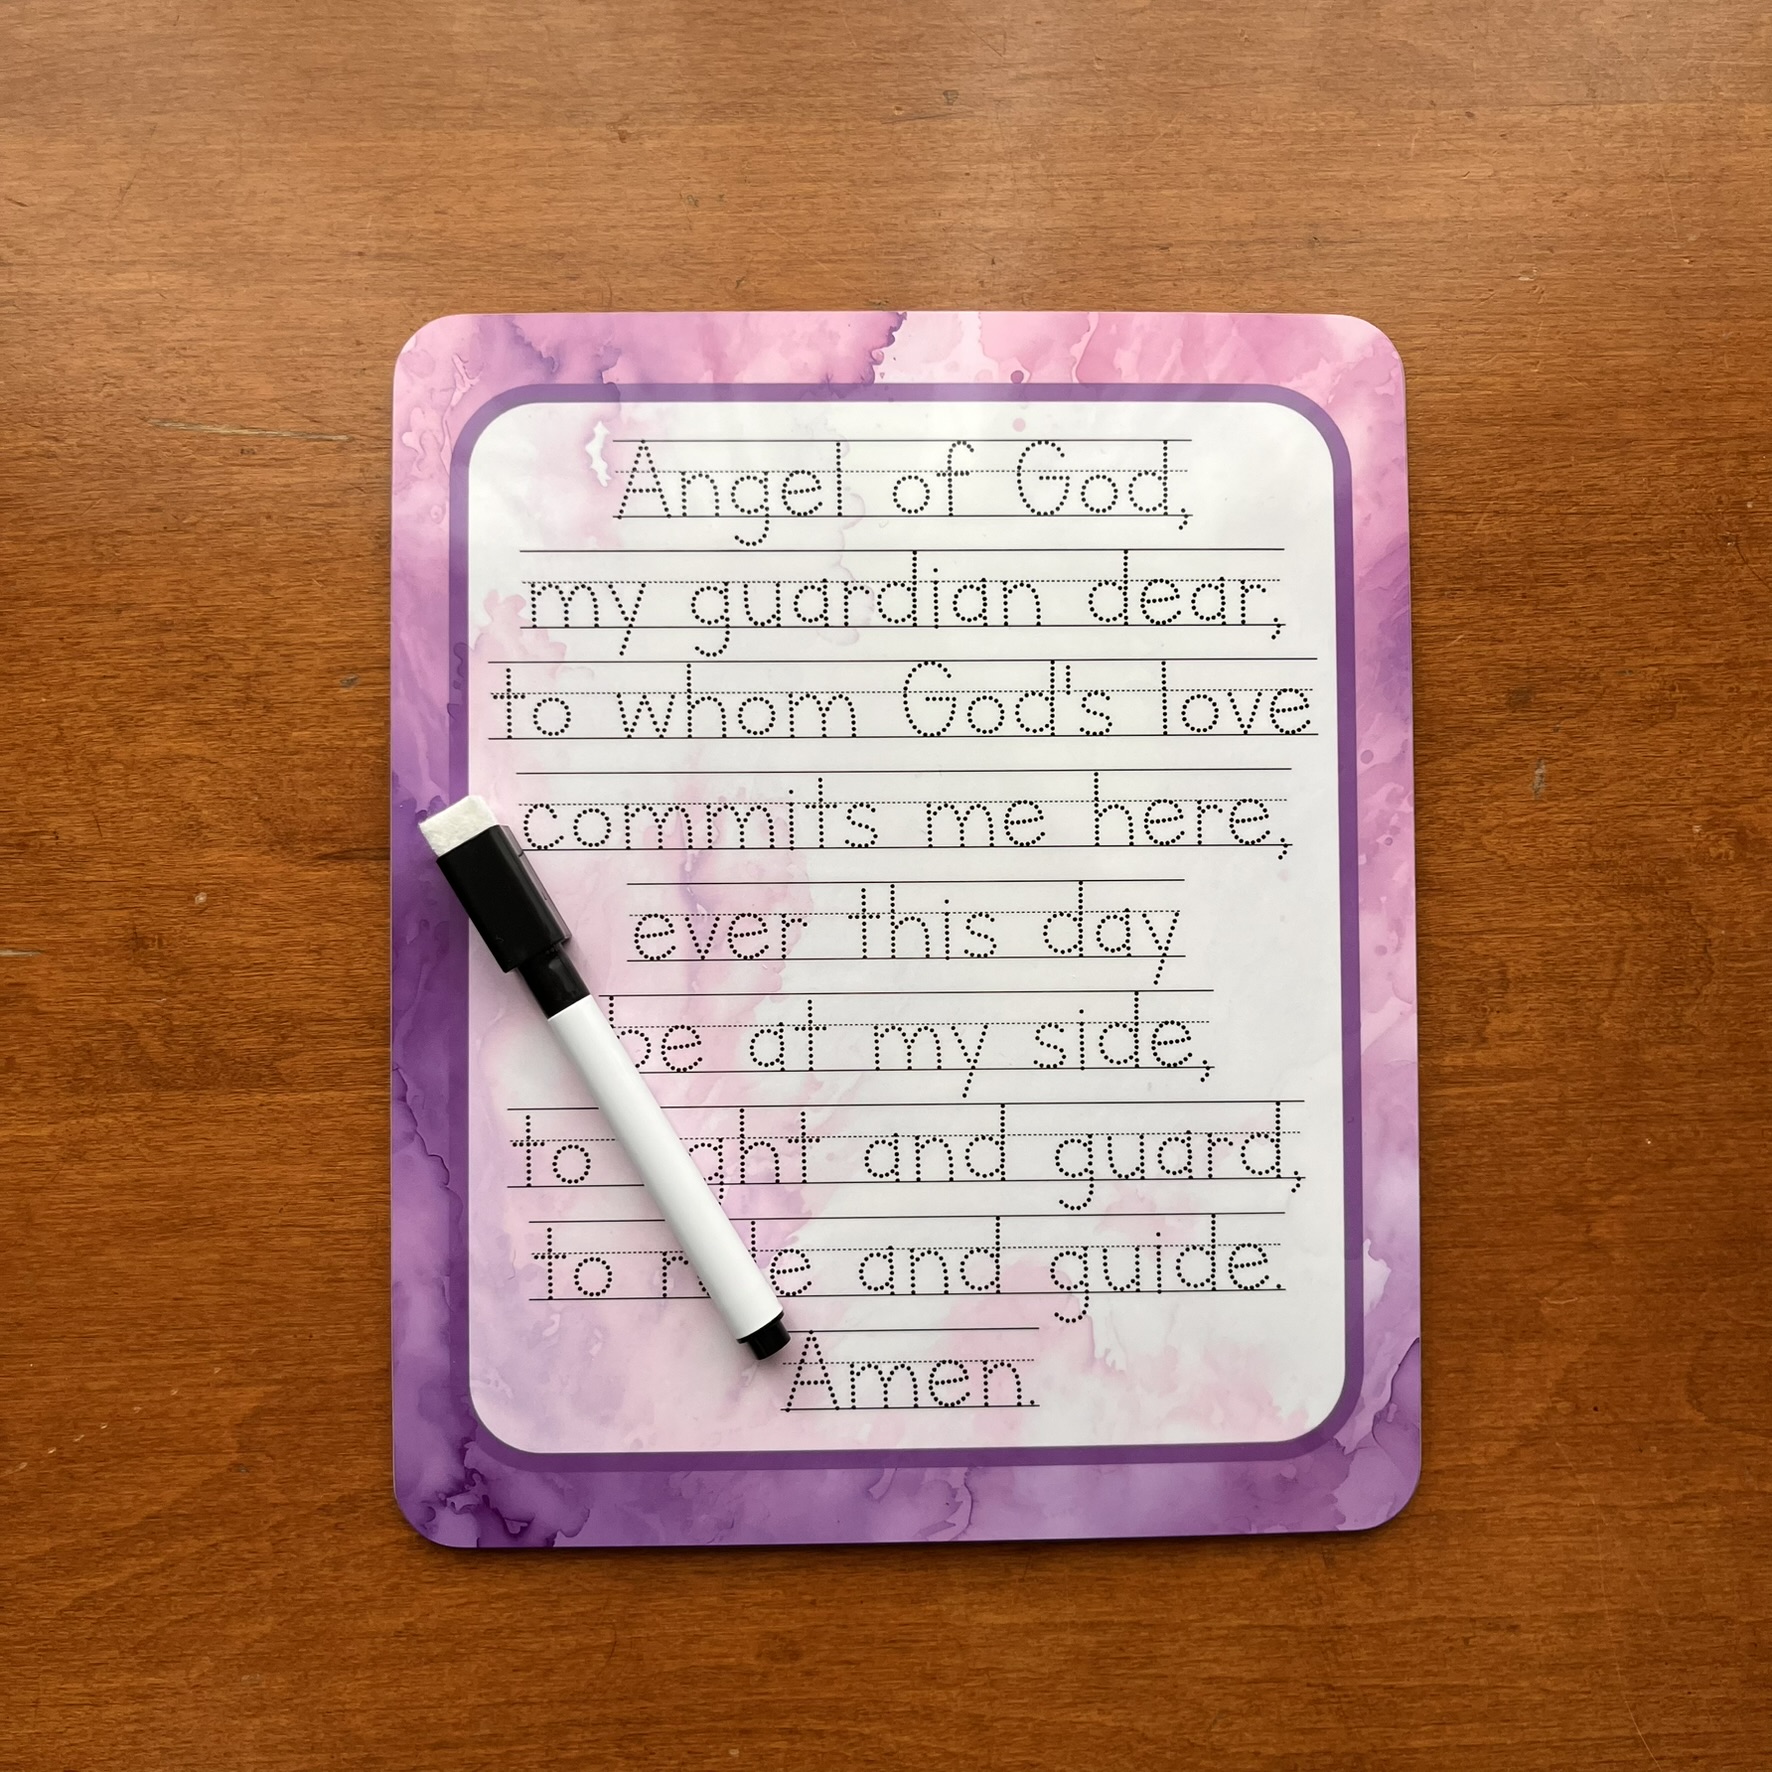 Angel of God,
my guardian dear,
to whom God's love
commits me here,
ever this day
be at my side,
to and guard,
to and guide.
Amen.